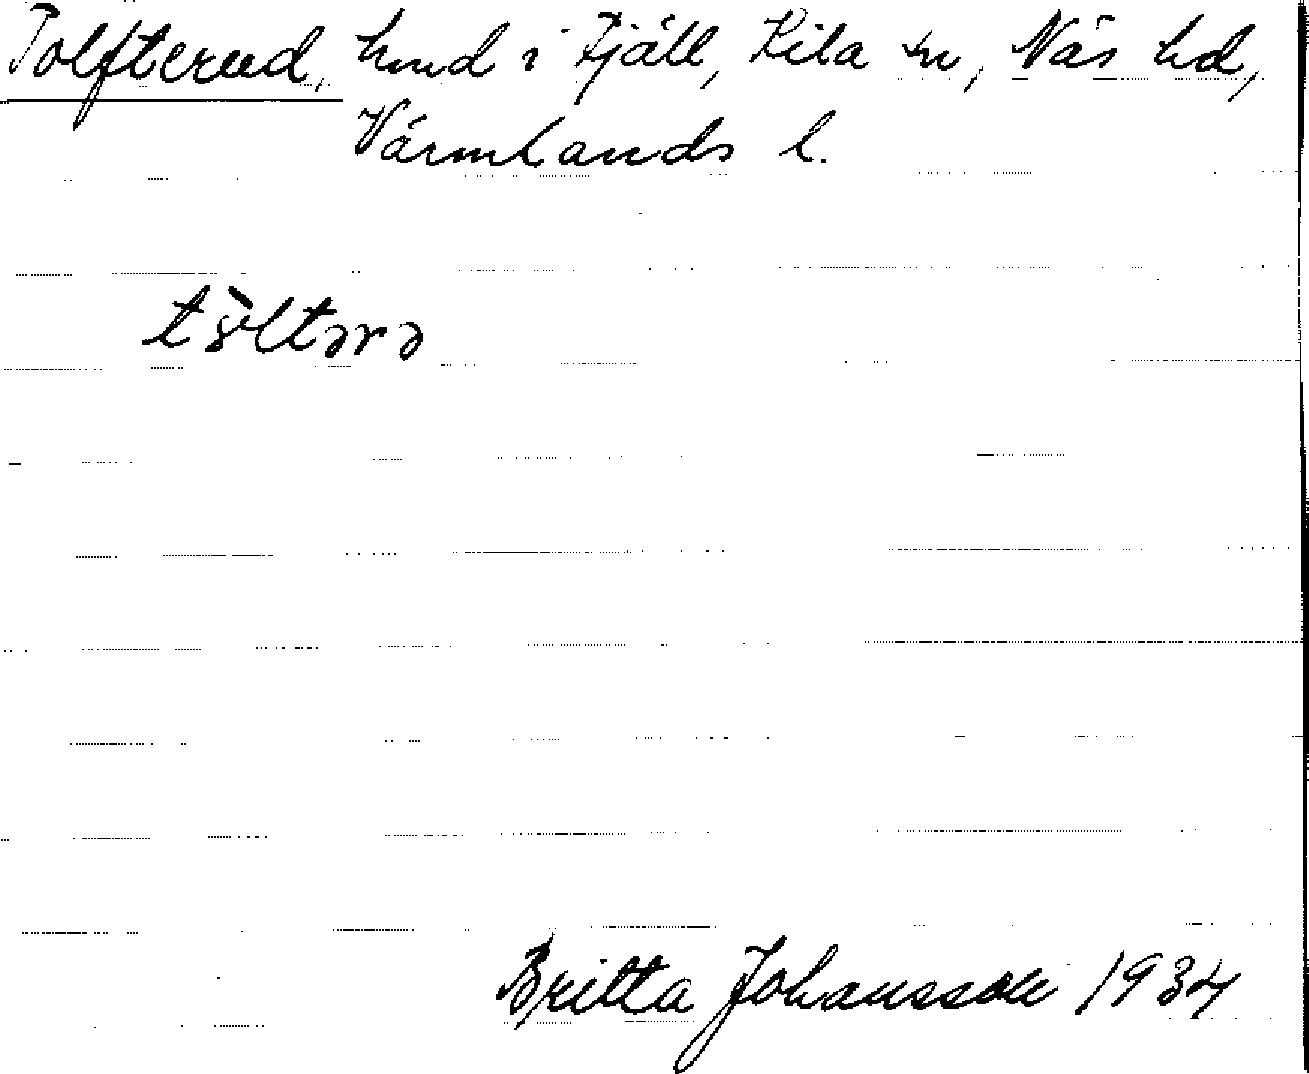 Tolfterud, hmd i Fjäll, Kila sn, Näs hd,
Värmlands l.
tö̀ltərə
Britta Johansson 1934